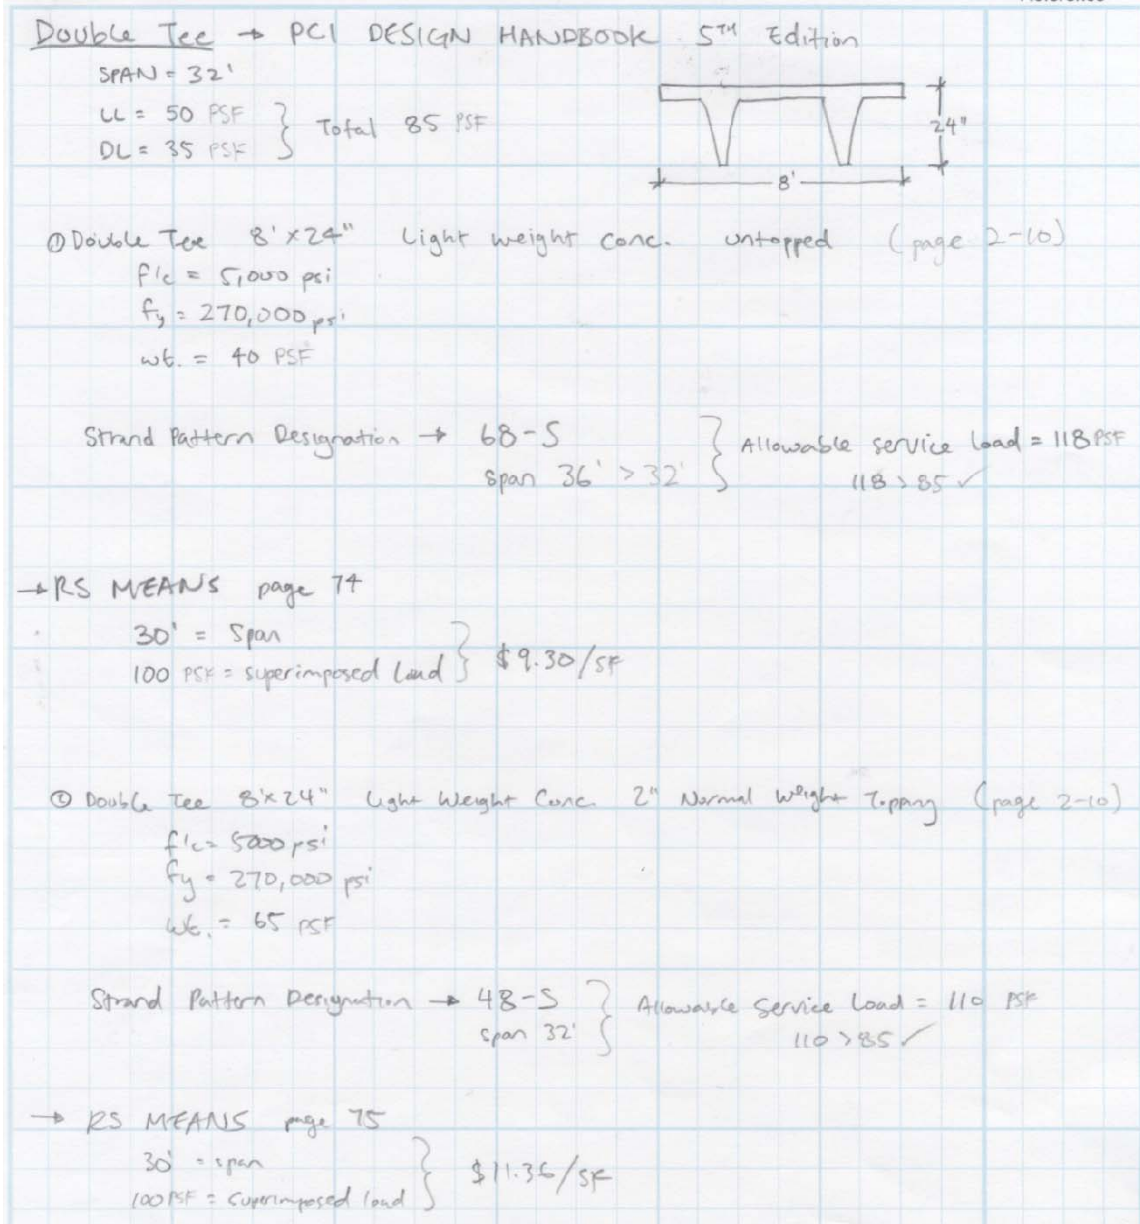 Double Tee → PCI DESIGN HANDBOOK 5TH Edition
SPAN = 32'
LL = 50 PSF
DL = 35 PSF
Total 85 PSF
24"
8'
① Double Tee 8'x24" Light weight conc. untopped (page 2-10)
f'c = 5,000 psi
fy = 270,000 psi
wt. = 40 PSF
Strand Pattern Designation → 68-S
span 36' > 32'
Allowable service load = 118 PSF
118 > 85 ✓
→ RS MEANS page 74
30' = Span
100 PSF = superimposed load
$9.30/SF
② Double Tee 8'x24" Light Weight Conc. 2" Normal Weight Topping (page 2-10)
f'c = 5000 psi
fy = 270,000 psi
wt. = 65 PSF
Strand Pattern Designation → 48-S
span 32'
Allowable Service Load = 110 PSF
110 > 85 ✓
→ RS MEANS page 75
30' = span
100 PSF = superimposed load
$11.36/SF